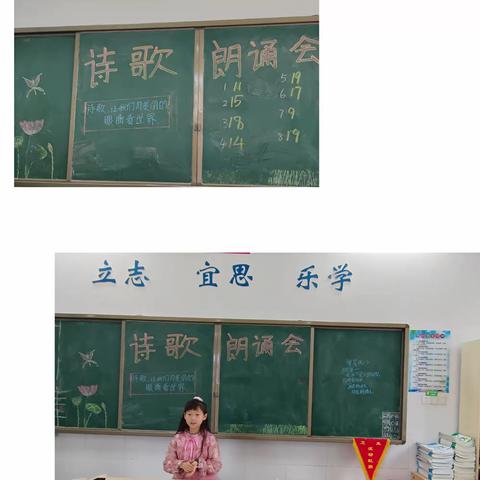 诗歌 朗诵会
诗歌,让我们用美丽的
眼睛看世界
1 11
2 15
3 18
4 14
5 19
6 17
7 9
8 19
立志 宜思 乐学
诗歌 朗诵会
诗歌,让我们用美丽的
眼睛看世界